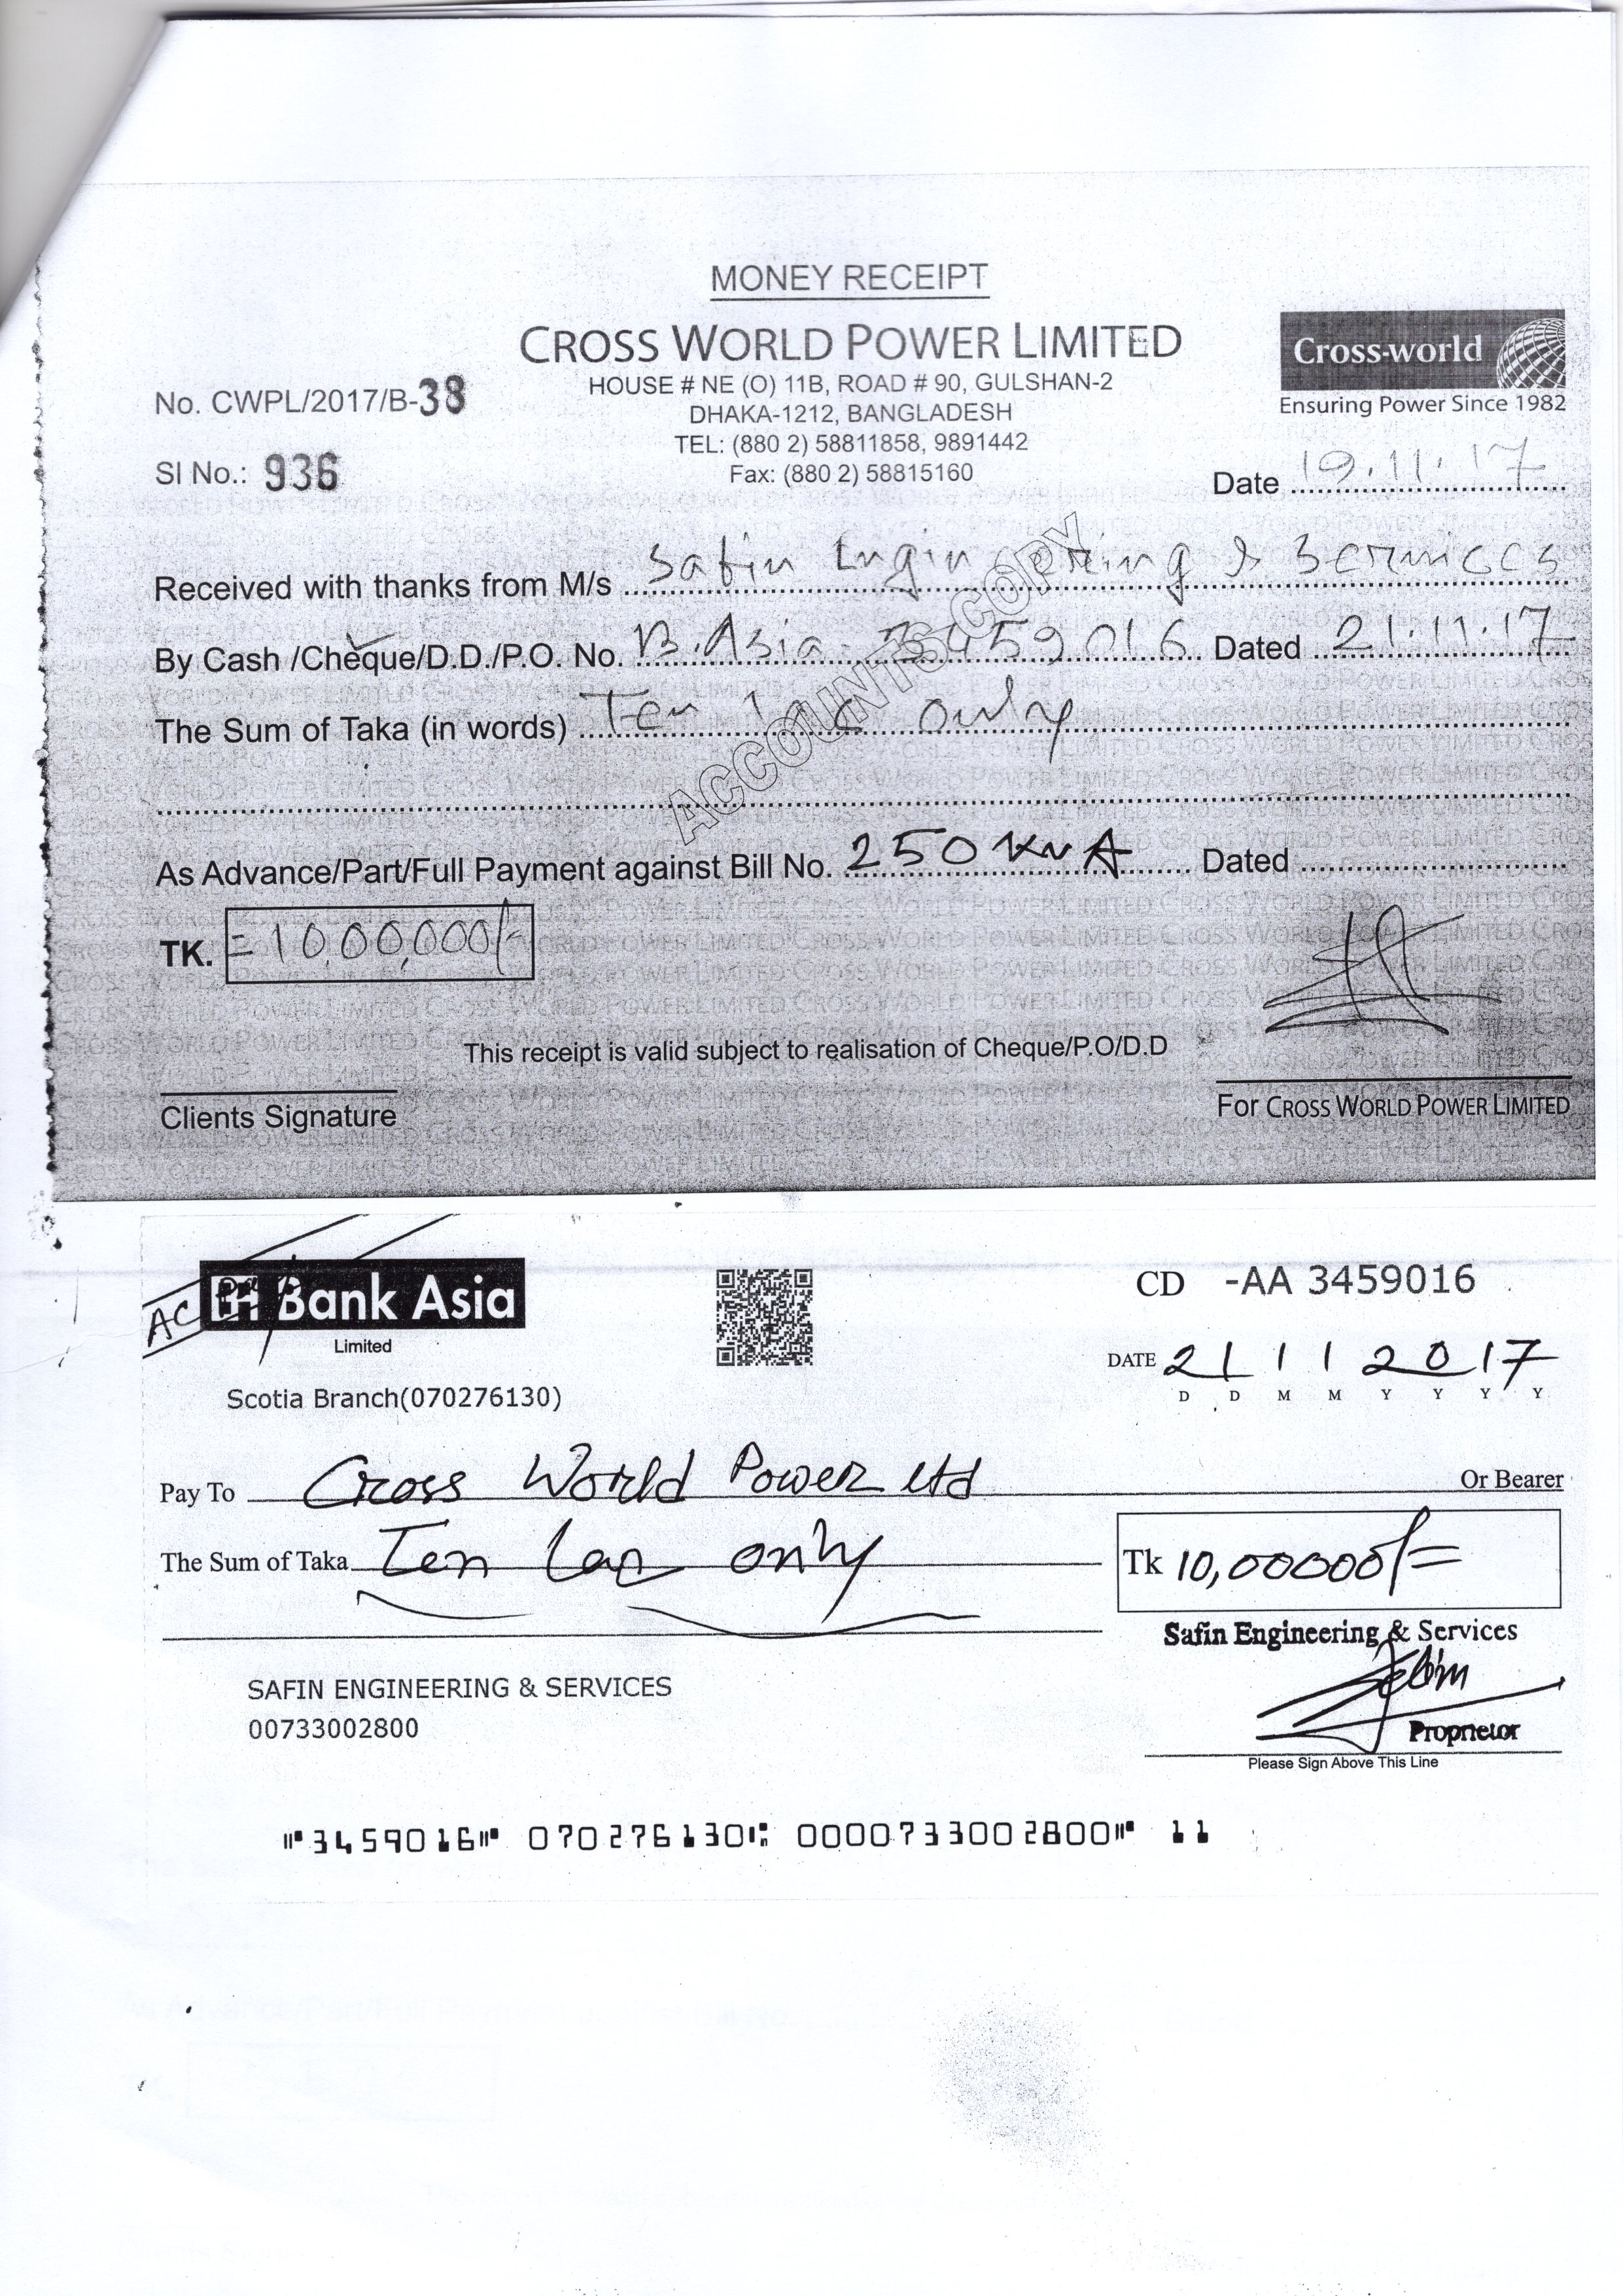 MONEY RECEIPT
CROSS WORLD POWER LIMITED
HOUSE # NE (O) 11B, ROAD # 90, GULSHAN-2
DHAKA-1212, BANGLADESH
TEL: (880 2) 58811858, 9891442
Fax: (880 2) 58815160
Cross-world
Ensuring Power Since 1982
No. CWPL/2017/B-38
SI No.: 936
Date 19.11.17
Received with thanks from M/s Safin Engineering & Services
By Cash /Cheque/D.D./P.O. No. B.Asia - 3459016 Dated 21.11.17
The Sum of Taka (in words) Ten lac only
ACCOUNTS COPY
As Advance/Part/Full Payment against Bill No. 250 KVA Dated
TK. = 10,00,000/-
This receipt is valid subject to realisation of Cheque/P.O/D.D
Clients Signature
For CROSS WORLD POWER LIMITED
AC
Bank Asia
Limited
CD -AA 3459016
DATE 21 11 2017
D D M M Y Y Y Y
Scotia Branch(070276130)
Pay To Cross World Power Ltd Or Bearer
The Sum of Taka Ten lac only Tk 10,00000/=
Safin Engineering & Services
SAFIN ENGINEERING & SERVICES
00733002800
Proprietor
Please Sign Above This Line
⑈3459016⑈ 070276130⑆ 0000733002800⑈ 11